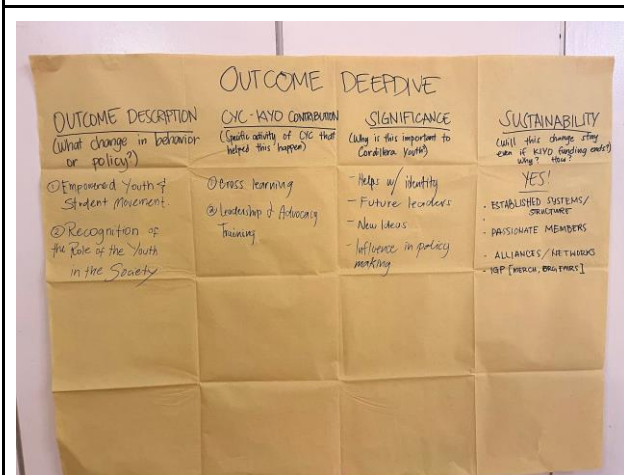 OUTCOME DEEPDIVE
OUTCOME DESCRIPTION
(What change in behavior
or policy?)
① Empowered Youth &
Student Movement.
② Recognition of
the Role of the Youth
in the Society
CYC - KIYO CONTRIBUTION
(Specific activity of CYC that
helped this happen)
① Cross learning
② Leadership & Advocacy
Training
SIGNIFICANCE
(Why is this important to
Cordillera Youth?)
- Helps w/ identity
- Future leaders
- New Ideas
- Influence in policy
making
SUSTAINABILITY
(Will this change stay
even if KIYO funding ends?
Why? How?
YES!
- ESTABLISHED SYSTEMS/
STRUCTURE
- PASSIONATE MEMBERS
- ALLIANCES/NETWORKS
- IGP [MERCH, ORG FAIRS]